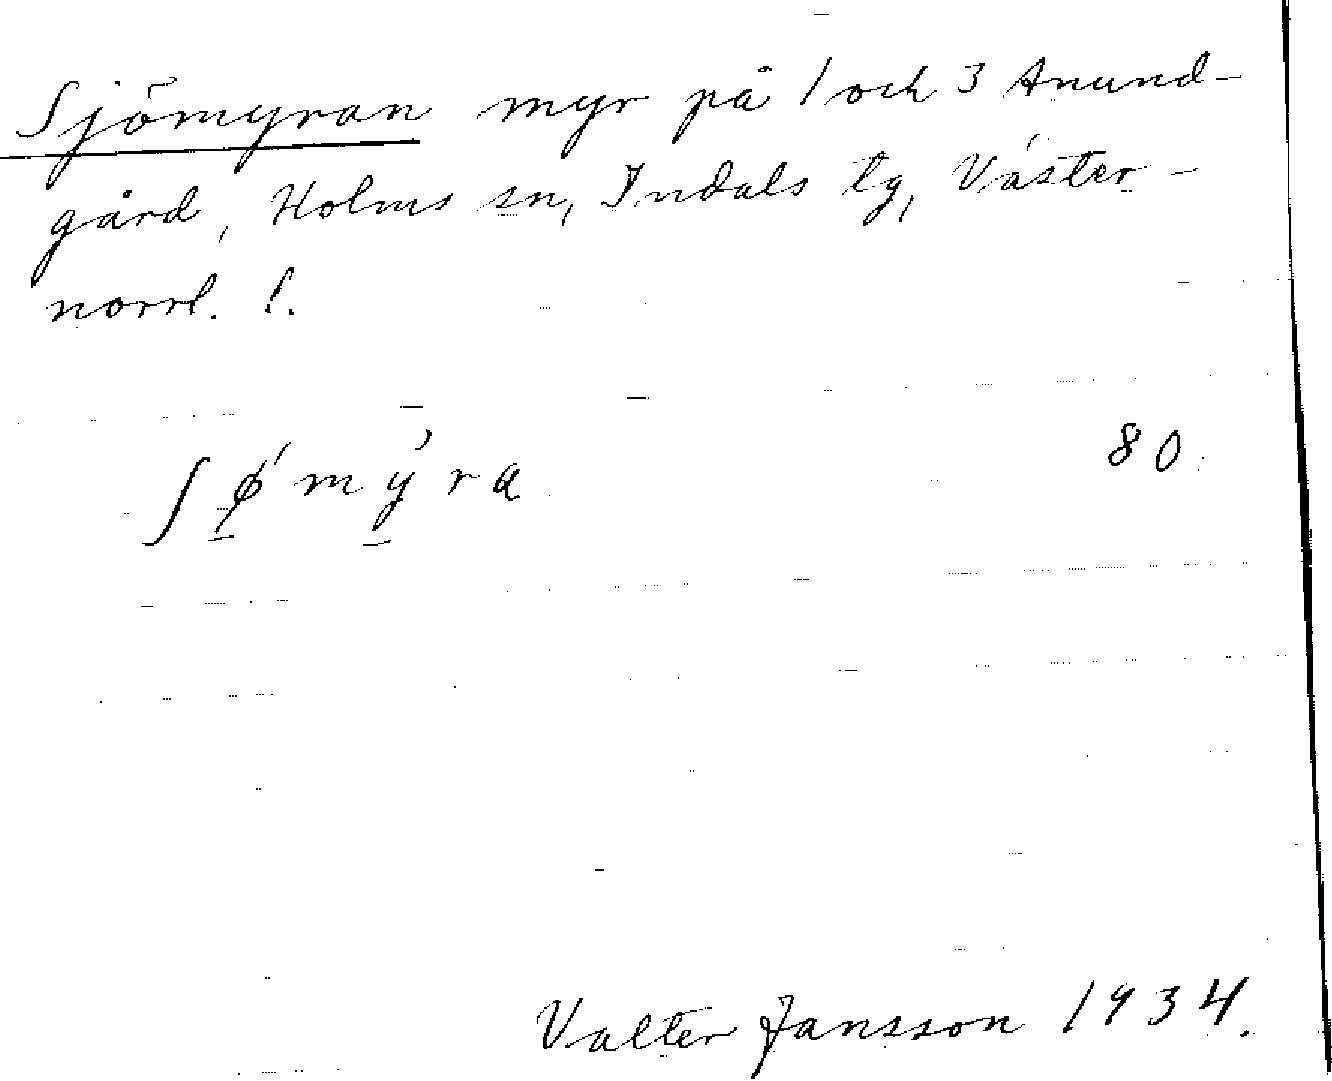 Sjömyran myr på 1 och 3 Anund-
gård, Holms sn, Indals tg, Väster-
norrl. l.
ʃǿ̱mỳ̱ra 80
Valter Jansson 1934.